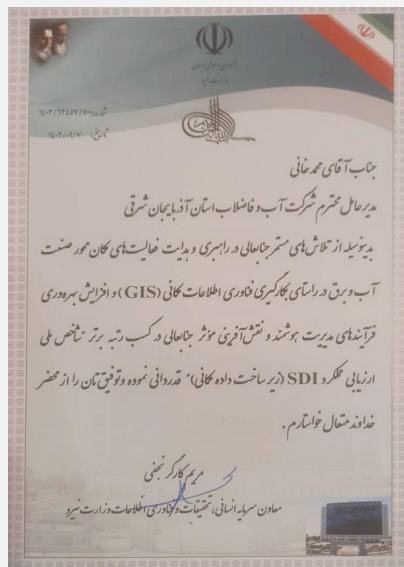 جمهوری اسلامی ایران
وزارت نیرو
شماره: ۱۴۰۳/۶۳۴۵۷/۵۰۰
تاریخ: ۱۴۰۳/۰۹/۰۷
جناب آقای محمدخانی
مدیرعامل محترم شرکت آب و فاضلاب استان آذربایجان شرقی
بدینوسیله از تلاش‌های مستمر جنابعالی در راهبری و هدایت فعالیت‌های مکان محور صنعت
آب و برق در راستای بکارگیری فناوری اطلاعات مکانی (GIS) و افزایش بهره‌وری
فرآیندهای مدیریت هوشمند و نقش آفرینی مؤثر جنابعالی در کسب رتبه برتر "شاخص ملی
ارزیابی عملکرد SDI (زیرساخت داده مکانی)" قدردانی نموده و توفیق‌تان را از محضر
خداوند متعال خواستارم.
مریم کارگر نجفی
معاون سرمایه انسانی، تحقیقات و فناوری اطلاعات وزارت نیرو